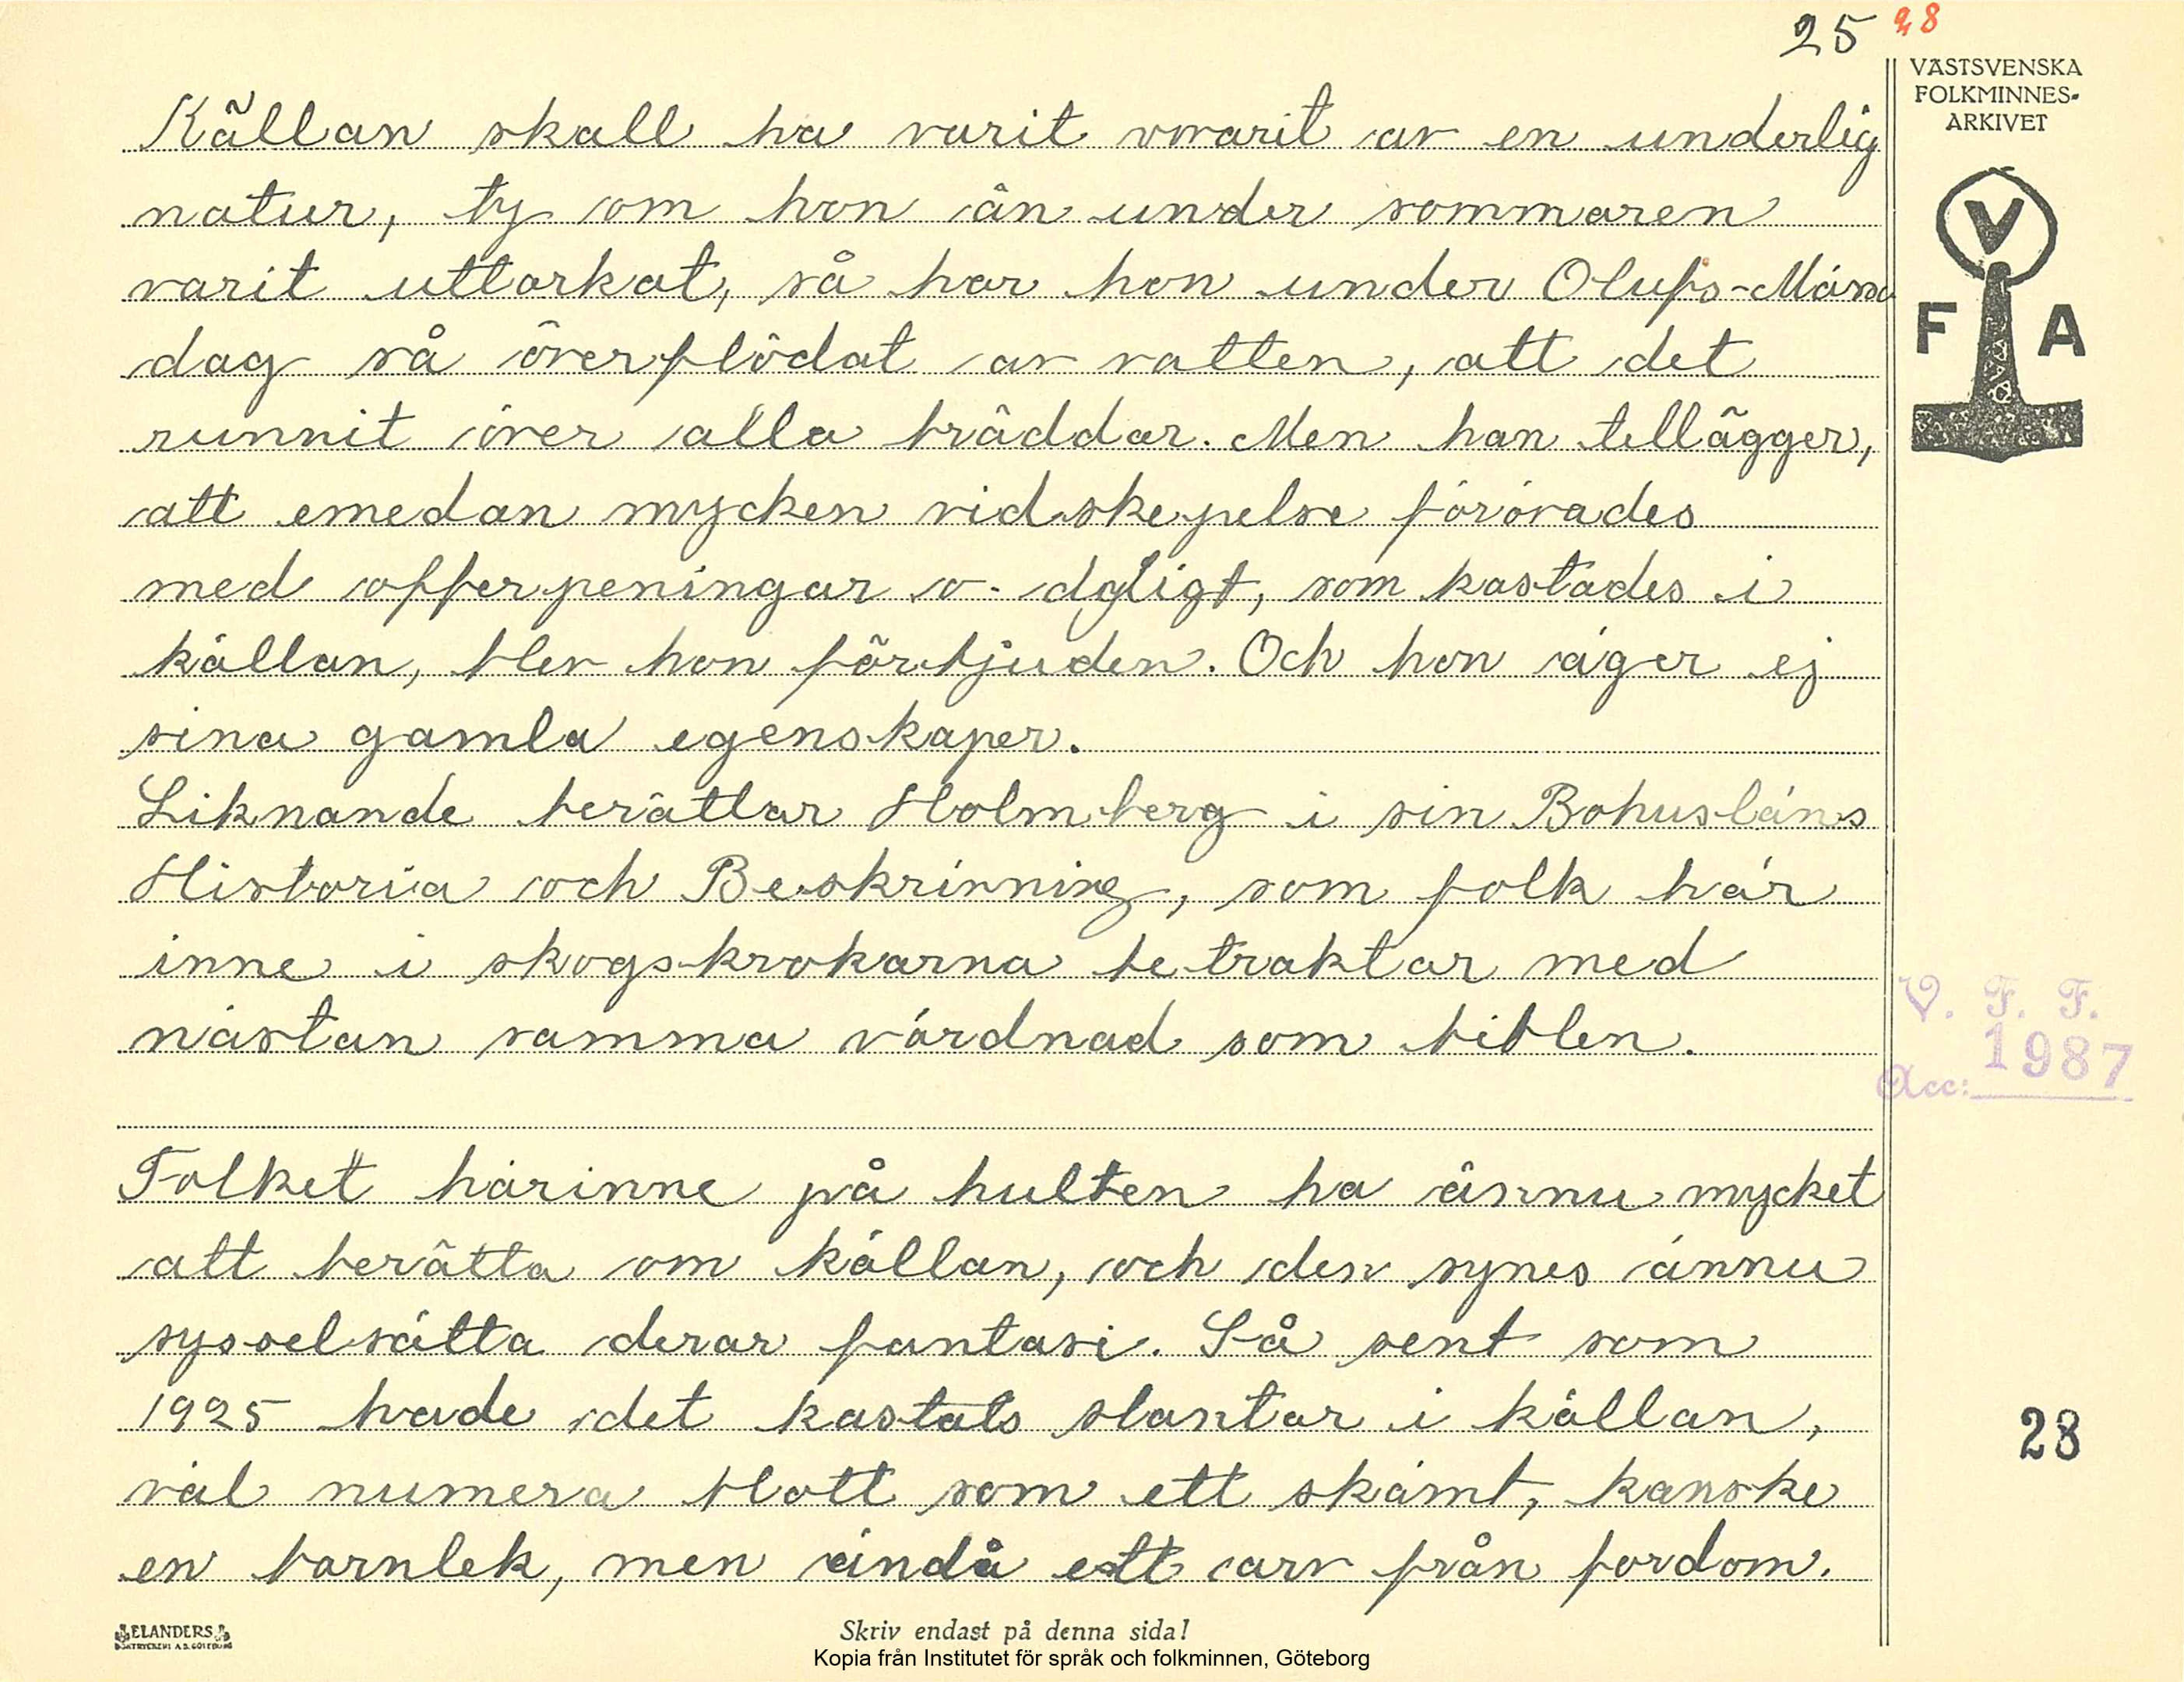 25 28
VÄSTSVENSKA
FOLKMINNES-
ARKIVET
V
F A
Källan skall ha varit vorarit av en underlig
natur, ty om hon än under sommaren
varit uttorkat, så har hon under Olufs-Mässo
dag så överflödat av vatten, att det
runnit över alla bräddar. Men han tillägger,
att emedan mycken vidskepelse förövades
med offerpeningar o. dyligt, som kastades i
källan, blev hon förbjuden. Och hon äger ej
sina gamla egenskaper.
Liknande berättar Holmberg i sin Bohusläns
Historia och Beskrivning, som folk här
inne i skogskrokarna betraktar med
nästan samma vördnad som biblen.
V. F. F.
1987
Acc:
Folket härinne på hulten ha ännu mycket
att berätta om källan, och den synes ännu
sysselsätta deras fantasi. Så sent som
1925 hade det kastats slantar i källan,
väl numera blott som ett skämt, kanske
en barnlek, men ändå ett arv från fordom.
28
ELANDERS
BOKTRYCKERI A.B. GÖTEBORG
Skriv endast på denna sida!
Kopia från Institutet för språk och folkminnen, Göteborg